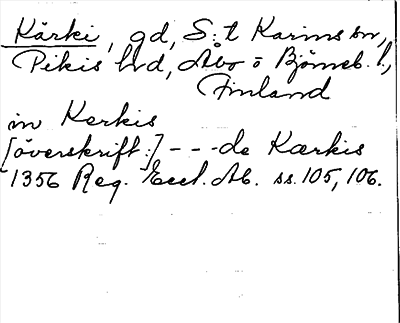 Kärki, gd, S:t Karins sn,
Pikis hd, Åbo o Björneb. l.,
Finland
in Kerkis
[överskrift:] - - - de Kærkis
1356 Reg. Eccl. Ab. ss. 105, 106.